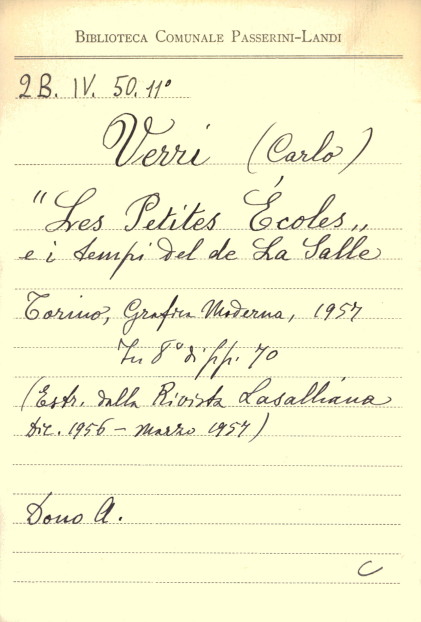 BIBLIOTECA COMUNALE PASSERINI-LANDI
2B. IV. 50. 11°
Verri (Carlo)
"Les Petites Écoles„
e i tempi del de La Salle
Torino, Grafica Moderna, 1957
In 8° di pp. 70
(Estr. dalla Rivista Lasalliana
Dic. 1956 - Marzo 1957)
Dono A.
C